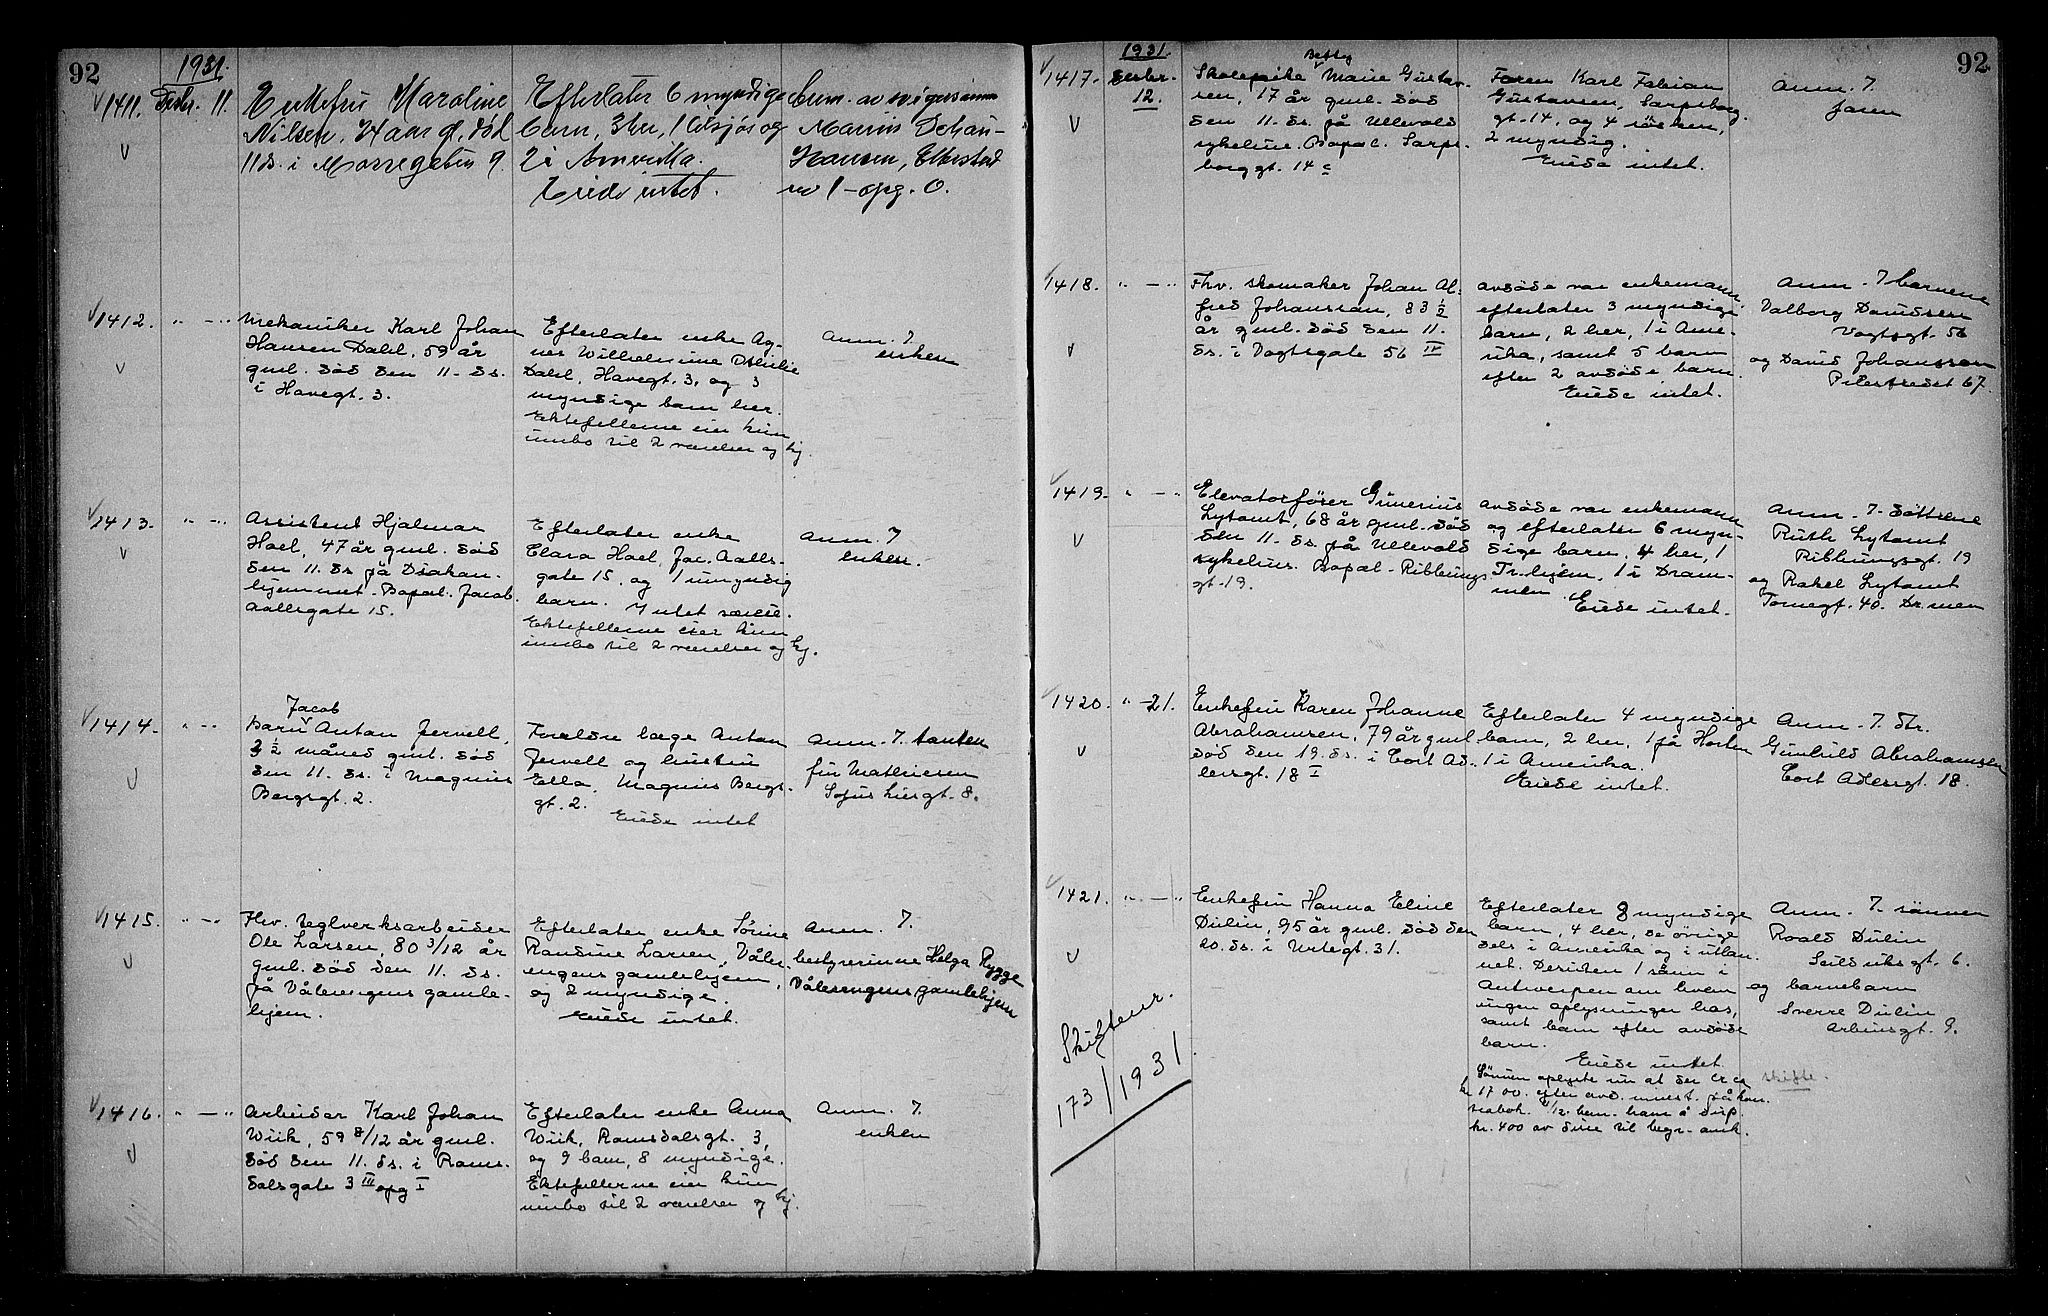 92
1931.
1411. Decbr. 11. Enkefru Karoline
Nilsen, 74 aar gl. død
11 ds. i Morregaten 9.
Efterlater 6 myndige
barn, 3 her, 1 tilsjøs og
2 i Amerika.
Eiede intet.
Anm. av svigersønnen
Marius Johan
Hansen, Ekerstad
nv 1 - opg. O.
1412. " — " Mekaniker Karl Johan
Hansen Dahl, 59 år
gml. død den 11. ds.
i Havegt. 3.
Efterlater enke Ag-
nes Wilhelmine Othilie
Dahl, Havegt. 3, og 3
myndige barn her.
Ektefellerne eier kun
innbo til 2 værelser og kj.
Anm. 7.
enken
1413. " — " Assistent Hjalmar
Hoel, 47 år gml. død
den 11. ds. på Diakon-
hjemmet. Bopæl. Jacob
Aallsgate 15.
Efterlater enke
Clara Hoel, Jac. Aalls-
gate 15, og 1 umyndig
barn. Intet særeie.
Ektefellerne eier kun
innbo til 2 værelser og kj.
Anm. 7
enken.
1414. " — " Jacob
Barn Anton Jervell,
2 1/2 måned gml. død
den 11. ds. i Magnus
Bergsgt. 2.
Foreldre læge Anton
Jervell og hustru
Ella, Magnus Bergs-
gt. 2.
Eiede intet
Anm. 7. tanten
fru Mathiesen
Sofus Liesgt. 8.
1415. " — " Fhv. teglverksarbeider
Ole Larsen, 80 3/12 år
gml. død den 11. ds.
på Vålerengens gamle-
hjem.
Efterlater enke Sørine
Randine Larsen, Våler-
engens gamlehjem,
og 2 myndige.
Eiede intet.
Anm. 7.
bestyrerinne Helga Rygge
Vålerengens gamlehjem
1416. " — " Arbeider Karl Johan
Wiik, 59 8/12 år gml.
død den 11. ds. i Roms-
dalsgate 3 III opg I
Efterlater enke Anna
Wiik, Romsdalsgt. 3,
og 9 barn, 8 myndige.
Ektefellerne eier kun
innbo til 2 værelser og kj.
Anm. 7.
enken
92
1931.
1417. Decbr. 12. Skolepike Betsy Marie Gustav-
sen, 17 år gml. død
den 11. ds. på Ullevold
sykehus. Bopæl. Sarps-
borggt. 14 c
Faren Karl Fabian
Gustavsen, Sarpsborg
gt. 14, og 4 søsken,
2 myndig.
Eiede intet.
Anm. 7.
faren
1418. " — " Fhv. skomaker Johan Al-
fred Johanssan, 83 1/2
år gml. død den 11.
ds. i Vogtsgate 56 IV
avdøde var enkemann.
efterlater 3 myndige
barn, 2 her, 1 i Ame-
rika, samt 5 barn
efter 2 avdøde barn.
Eiede intet.
Anm. 7 barnene
Valborg Davidsen
Vogtsgt. 56
og David Johanssan
Pilestredet 67.
1419. " — " Elevatorfører Gunerius
Lytomt, 68 år gml. død
den 11. ds. på Ullevold
sykehus. Bopæl - Ribbungs
gt. 19.
avdøde var enkemann
og efterlater 6 myn-
dige barn, 4 her, 1
Tr.hjem, 1 i Dram-
men.
Eiede intet.
Anm. 7. døttrene
Ruth Lytomt
Ribbungsgt. 19
og Rakel Lytomt
Tornegt. 40. Dr.men
1420. " — 21. Enkefru Karen Johanne
Abrahamsen, 79 år gml
død den 19. ds. i Cort Ad-
lersgt. 18 I
Efterlater 4 myndige
barn, 2 her, 1 på Horten
1 i Amerika.
Eiede intet.
Anm. 7. dtr.
Gunhild Abrahamsen
Cort Adlersgt. 18.
1421. " — " Enkefru Hanna Eline
Dulin, 95 år gml. død den
20. ds. i Urtegt. 31.
Skiftenr.
173/1931
Efterlater 8 myndige
barn, 4 her, de øvrige
dels i Amerika og i utlan-
net. Desuten 1 sønn i
Antwerpen om hvem
ingen oplysninger has,
samt barn efter avdøde
barn.
Eiede intet.
Sønnen oplyste nu at der er ca
kr. 1700 efter avd. innest. på kon.
i bok. 21/12. bem. ham å disp.
kr. 400 av dine til begr. omk.
Anm. 7. sønnen
Roald Dulin
Seilduksgt. 6.
og barnebarn
Sverre Dulin
Arbinsgt. 9.
skifte.